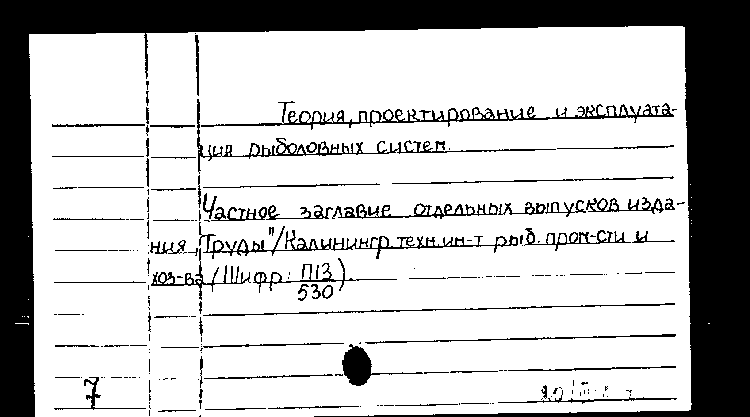 Теория, проектирование и эксплуата-
ция рыболовных систем.
Частное заглавие отдельных выпусков изда-
ния „Труды"/Калинингр. техн. ин-т рыб. пром-сти и
хоз-ва (Шифр: П13/530).
7